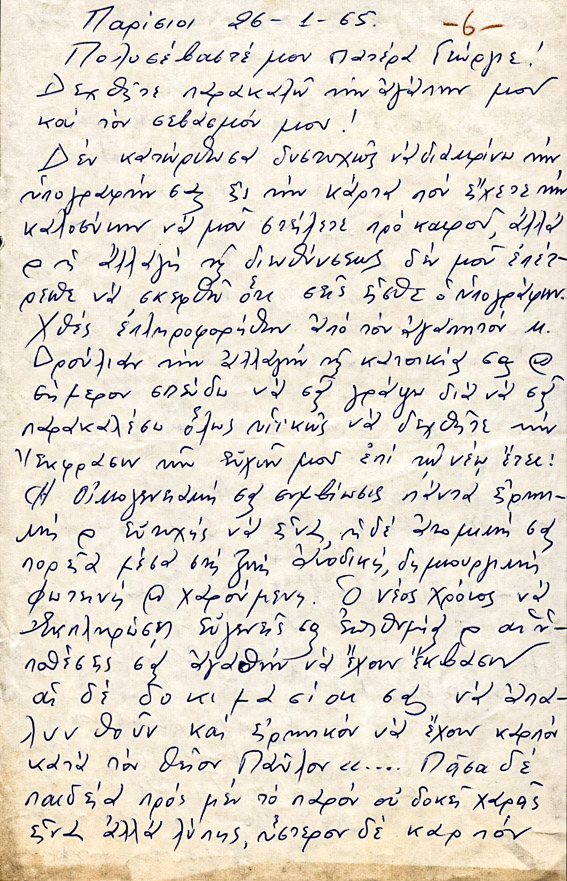 Παρίσιοι 26-1-65. -6-
Πολυσέβαστέ μου πατέρα Γιώργιε!
Δεχθῆτε παρακαλῶ τὴν ἀγάπην μου
καὶ τὸν σεβασμόν μου!
Δὲν κατώρθωσα δυστυχῶς νὰ διακρίνω τὴν
ὑπογραφήν σας εἰς τὴν κάρτα ποὺ εἴχετε τὴν
καλοσύνην νὰ μοῦ στείλετε πρὸ καιροῦ, ἀλλὰ
ἡ ἀλλαγὴ τῆς διευθύνσεως δέν μοῦ ἐπέτ-
ρεψε νὰ σκεφθῶ ὅτι σεῖς εἶσθε ὁ ὑπογράφων.
Χθὲς ἐπληροφορήθην ἀπὸ τὸν ἀγαπητὸν κ.
Δρούλιαν τὴν ἀλλαγὴν τῆς κατοικίας σας
σήμερον σπεύδω νὰ σᾶς γράψω διὰ νὰ σᾶς
παρακαλέσω ὅλως νὰ δεχθῆτε τὴν
ἔκφρασιν τῶν εὐχῶν μου ἐπὶ τῷ νέῳ ἔτει!
Ἡ Οἰκογενειακή σας συμβίωσις πάντα εἰρηνι-
κή εὐτυχὴς νὰ εἶναι, ἡ δὲ ἀτομική σας
πορεία μέσα στὴ ζωὴ ἀνοδική, δημιουργική
φωτεινὴ χαρούμενη. Ὁ νέος χρόνος νὰ
ἐκπληρώσῃ εὐγενεῖς σας ἐπιθυμίας αἱ ὑ-
ποθέσεις σας ἀγαθὴν νὰ ἔχουν ἔκβασιν
αἱ δὲ δοκιμασίαι σας νὰ ἀπα-
λυνθοῦν καὶ εἰρηνικὸν νὰ ἔχουν καρπὸν
κατὰ τὸν θεῖον Παῦλον «.... Πᾶσα δὲ
παιδεία πρὸς μὲν τὸ παρὸν οὐ δοκεῖ χαρᾶς
εἶναι ἀλλὰ λύπης, ὕστερον δὲ καρπὸν